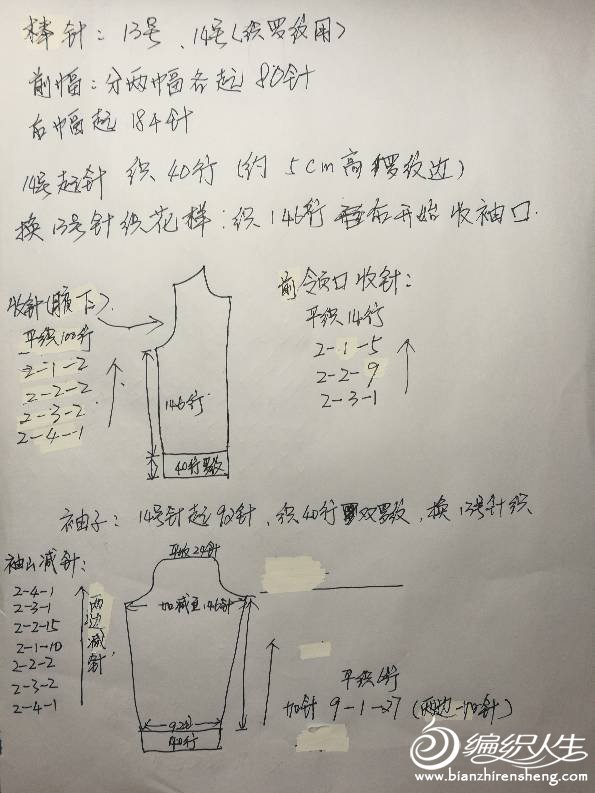 棒针：13号、14号（织罗纹用）
前幅：分两幅各起80针
后幅起184针
14号起针 织40行（约5cm高罗纹边）
换13号针织花样：织146行 后开始收袖口.
收针（腋下）.
平织100行
2-1-2
2-2-2
2-3-2
2-4-1
146行
40行罗纹
前领口收针：
平织14行
2-1-5
2-2-9
2-3-1
袖子：14号针起92针、织40行双罗纹，换13号针织
袖山减针：
2-4-1
2-3-1
2-2-15
2-1-10
2-2-2
2-3-2
2-4-1
两边减针，
平收24针
加减至146针
92针
40行
平织6行
加针 9-1-27（两边加针）
编织人生
www.bianzhirensheng.com